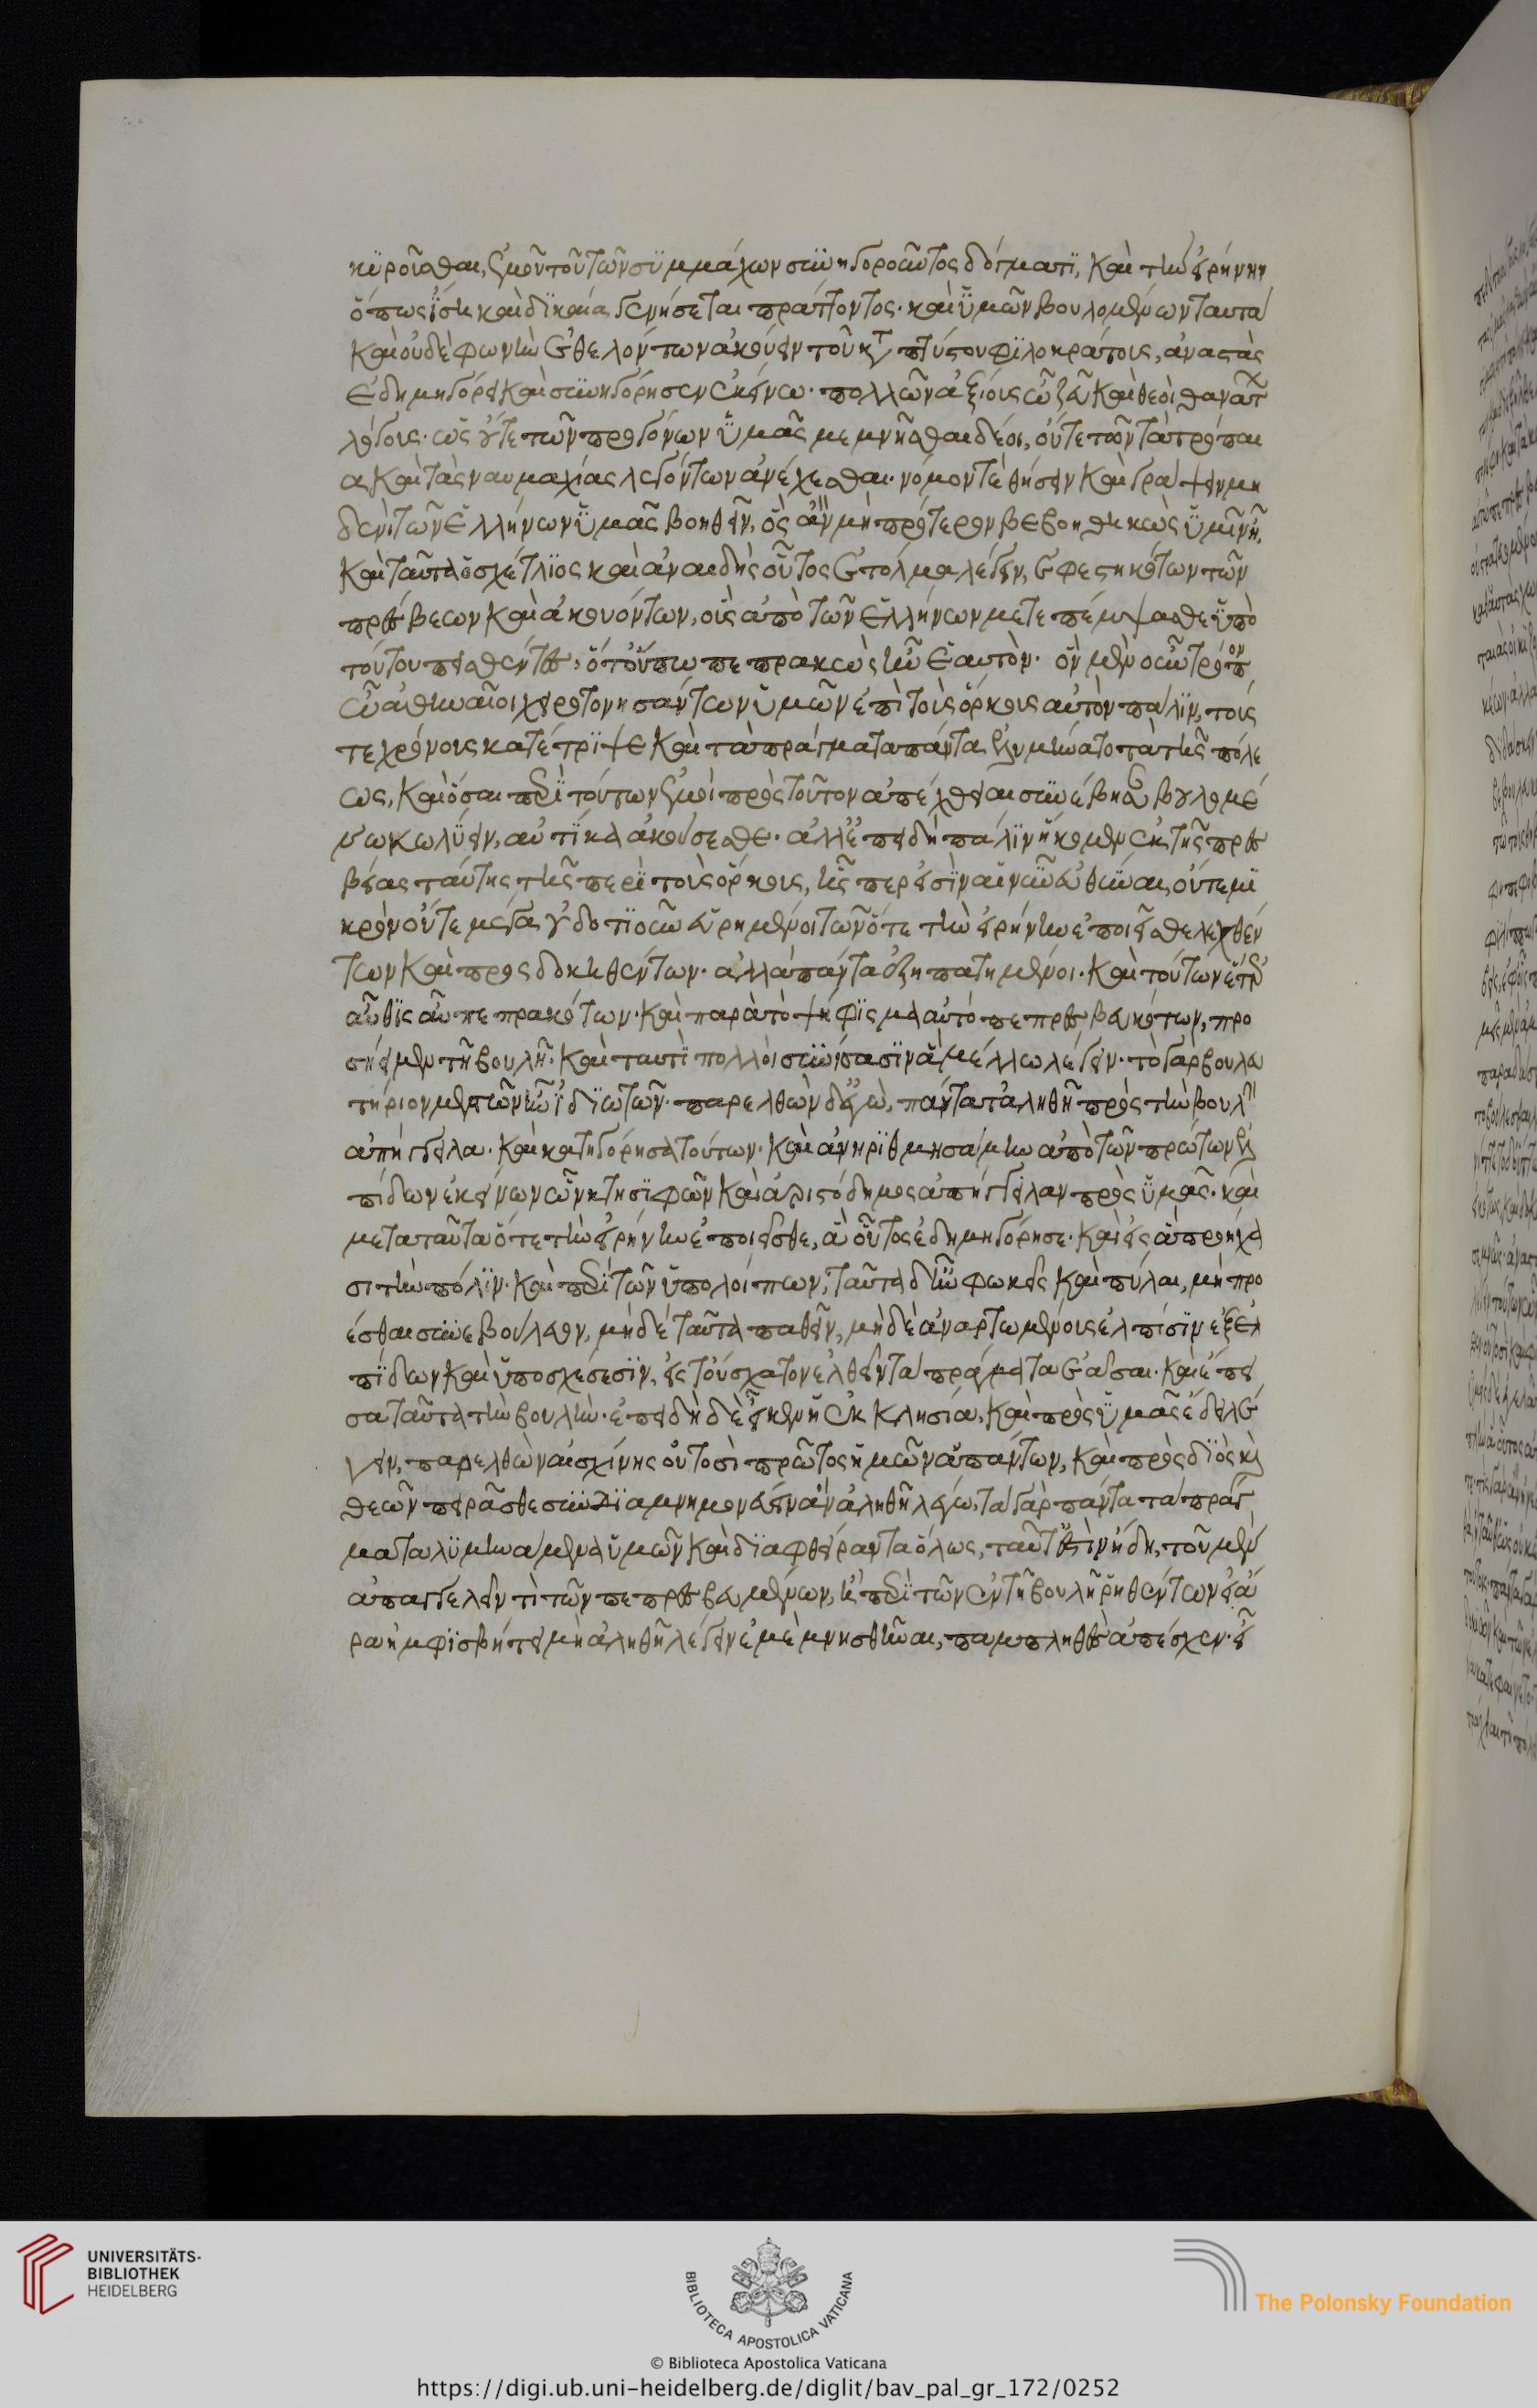 κϋροῦσθαι, ἐμοῦ τοῦ τῶν συμμάχων συνηγοροῦντος δόγματι, καὶ τὴν εἰρήνην
ὅπως ἴση καὶ δικαία γενήσεται πράττοντος· καὶ ὑμῶν βουλομένων ταῦτα
καὶ οὐδὲ φωνὴν ἐθελόντων ἀκούειν τοῦ κατ πτύστου φιλοκράτους, ἀναστὰς
ἐδημηγόρει καὶ συνηγόρησεν ἐκείνω· πολλῶν ἀξίους ὦ ζεῦ καὶ θεοὶ θανάτ
λόγους· ὡς οὔτε τῶν προγόνων ὑμᾶς μεμνῆσθαι δέοι, οὔτε τῶν τὰ τρόπαι
α καὶ τὰς ναυμαχίας λεγόντων ἀνέχεσθαι· νόμον τὲ θήσειν καὶ γράψειν μη
δενὶ τῶν ἑλλήνων ὑμᾶς βοηθεῖν, ὃς ἂν μὴ πρότερον βεβοηθηκὼς ὑμῖν ἦ,
καὶ ταῦτα ὁ σχέτλιος καὶ ἀναιδὴς οὗτος ἐτόλμα λέγειν, ἐφεστηκότων τῶν
πρέσβεων καὶ ἀκουόντων, οὓς ἀπὸ τῶν ἑλλήνων μετεπέμψασθε ὑπὸ
τούτου πεισθέντες, ὅτ' οὔπω πεπρακὼς ἦν ἑαυτὸν· ὃν μὲν οὖν τρόπον
ὦ ἄ ἀθηναῖοι χειροτονησάντων ὑμῶν ἐπὶ τοὺς ὅρκους αὐτὸν πάλιν, τούς
τε χρόνους κατέτριψε καὶ τὰ πράγματα πάντα ἐλυμήνατο τὰ τῆς πόλε
ως, καὶ ὅσαι περὶ τούτων ἐμοὶ πρὸς τοῦτον ἀπέχθειαι συνέβησαν βουλομέ
νω κωλύειν, αὐτίκα ἀκούσεσθε· ἀλλ' ἐπειδὴ πάλιν ἥκομεν ἐκ τῆς πρεσ
βείας ταύτης τῆς περὶ τοὺς ὅρκους, ἧς περ εἰσὶν αἱ νῦν εὔθυναι, οὔτε μι
κρὸν οὔτε μέγα οὐδοτιοῦν εὑρημένοι τῶν ὅτε τὴν εἰρήνην ἐποιεῖσθε λεχθέν
των καὶ προσδοκηθέντων· ἀλλὰ πάντα ἐξηπατημένοι· καὶ τούτων ἕτερ
αὖθις αὖ πεπραχότων· καὶ παρὰ τὸ ψήφισμα αὐτὸ πεπρεσβευκότων, προ
σήειμεν τῆ βουλῆ· καὶ ταυτὶ πολλοὶ συνίσασιν ἃ μέλλω λέγειν· τὸ γὰρ βουλευ
τήριον μεστὸν ἦν ἰδιωτῶν· παρελθὼν δ' ἐγὼ, πάντα τἀληθῆ πρὸς τὴν βουλὴ
ἀπήγγειλα· καὶ κατηγόρησα τούτων· καὶ ἀνηριθμησάμην ἀπὸ τῶν πρώτων ἐλ
πίδων ἐκείνων ὧν κτησιφῶν καὶ ἀριστόδημος ἀπήγγειλαν πρὸς ὑμᾶς· καὶ
μετὰ ταῦτα ὅτε τὴν εἰρήνην ἐποιεῖσθε, ἃ οὗτος ἐδημηγόρησε· καὶ εἰς ἃ προῆχα
σι τὴν πόλιν· καὶ περὶ τῶν ὑπολοίπων, ταῦτα δ' ἦν φωκεῖς καὶ πύλαι, μὴ προ
έσθαι συνεβούλευον, μηδὲ ταῦτα παθεῖν, μηδὲ ἀναρτωμένους ἐλπίσιν ἐξ ἐλ
πίδων καὶ ὑποσχέσεσιν, εἰς τοὔσχατον ἐλθεῖν τὰ πράγματα ἐᾶσαι· καὶ ἔπει
σα ταῦτα τὴν βουλὴν· ἐπειδὴ δὲ ἧκεν ἡ ἐκκλησία, καὶ πρὸς ὑμᾶς ἔδει λέ
γειν, παρελθὼν αἰσχίνης οὑτοσὶ πρῶτος ἡμῶν ἁπάντων, καὶ πρὸς διὸς καὶ
θεῶν πειρᾶσθε συνδιαμνημονεύειν ἂν ἀληθῆ λέγω, τὰ γὰρ πάντα τὰ πράγ
ματα λυμηνάμενα ὑμῶν καὶ διαφθείραντα ὅλως, ταῦτ' ἐστὶν ἤδη, τοῦ μὲν
ἀπαγγέλλειν τὶ τῶν πεπρεσβευμένων, ἢ περὶ τῶν ἐν τῆ βουλῆ ῥηθέντων εἰ ἄ
ρα ἠμφισβήτει μὴ ἀληθῆ λέγειν ἐμὲ μνησθῆναι, παμπληθὲς ἀπέσχεν· εἶ
UNIVERSITÄTS-
BIBLIOTHEK
HEIDELBERG
BIBLIOTECA APOSTOLICA VATICANA
The Polonsky Foundation
© Biblioteca Apostolica Vaticana
https://digi.ub.uni-heidelberg.de/diglit/bav_pal_gr_172/0252